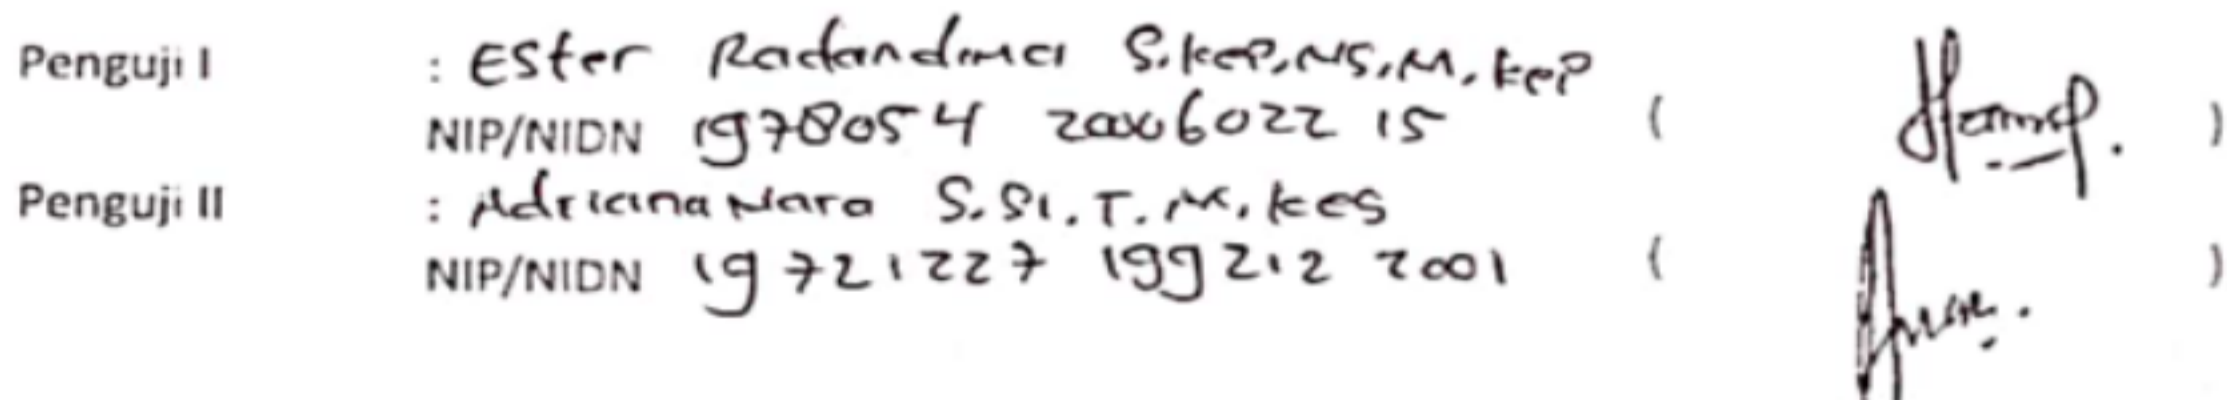 Penguji I : Ester Radandima S.Kep,NS,M.Kep
NIP/NIDN 1978054 2006022 15 ( )
Penguji II : Adriana Nara S.SI.T.M.Kes
NIP/NIDN 19721227 199212 2001 ( )